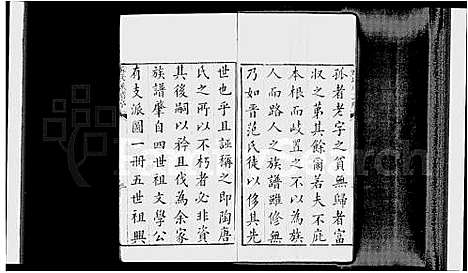 孤者老字之貧無歸者富
収之第其餘爾若夫不庇
本根而岐置之不以為族
人而路人之族譜雖修無
乃如晋范氏徒以侈其先
世也乎且誣稱之即陶唐
氏之所以不朽者必非資
其後嗣以矜且伐為余家
族譜肇自四世祖文學公
有支派圖一冊五世祖興